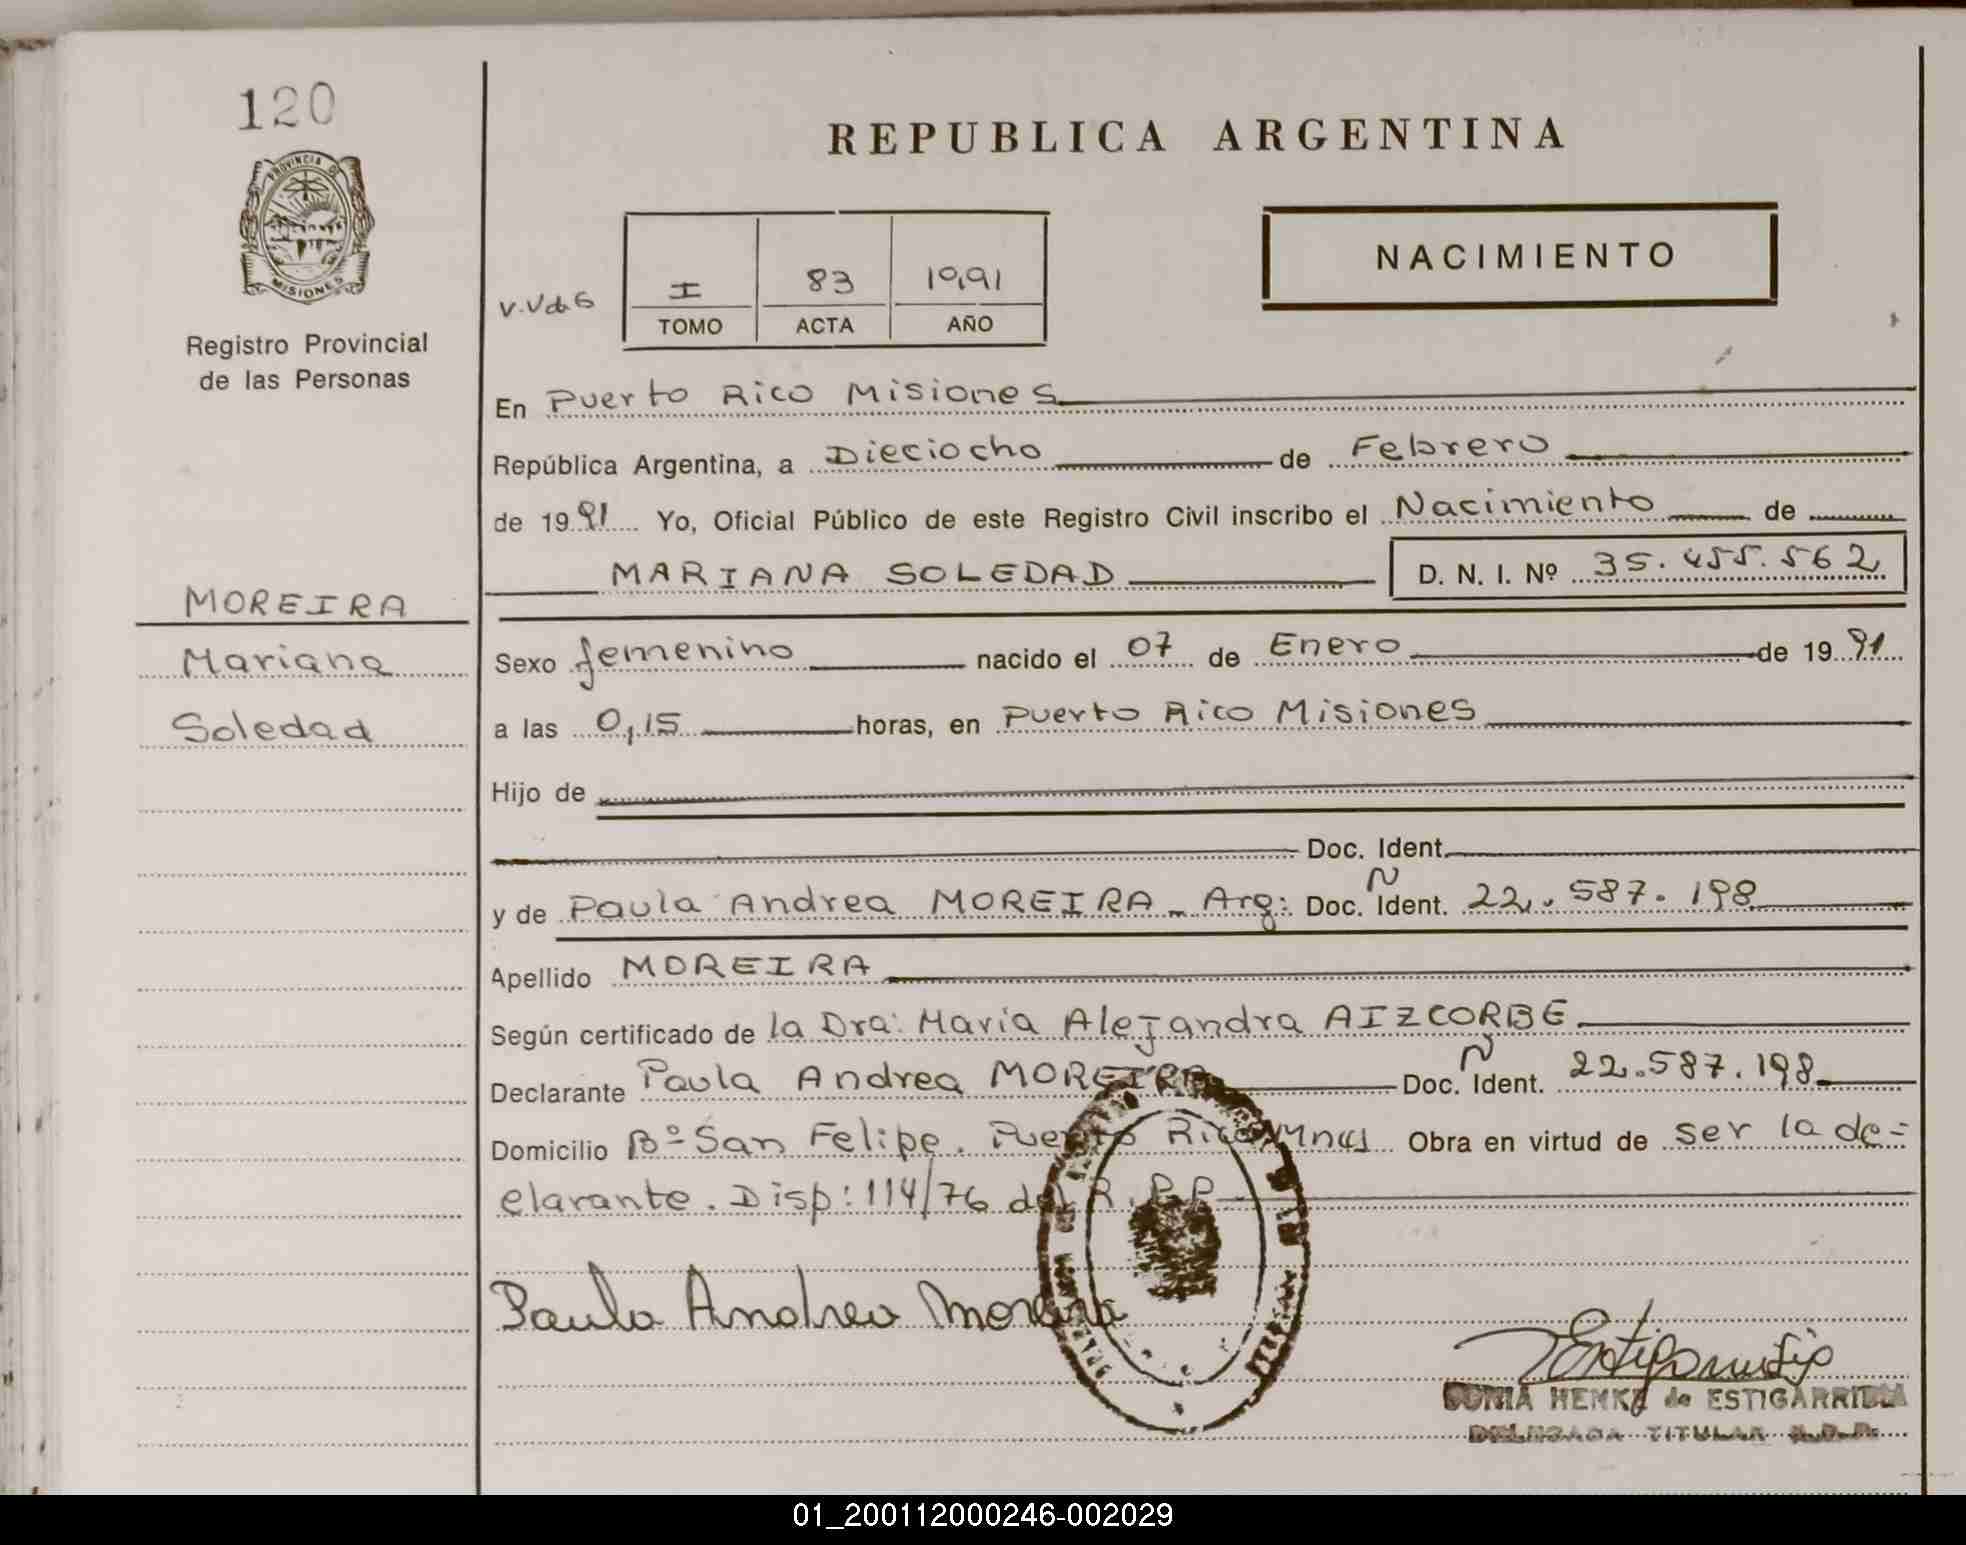 120
PROVINCIA DE
MISIONES
Registro Provincial
de las Personas
MOREIRA
Mariana
Soledad
REPUBLICA ARGENTINA
I 83 19,91
TOMO ACTA AÑO
NACIMIENTO
En Puerto Rico Misiones
República Argentina, a Dieciocho de Febrero
de 19 91 Yo, Oficial Público de este Registro Civil inscribo el Nacimiento de
MARIANA SOLEDAD D. N. I. Nº 35.455.562
Sexo femenino nacido el 07 de Enero de 19 91
a las 0,15 horas, en Puerto Rico Misiones
Hijo de
Doc. Ident.
y de Paula Andrea MOREIRA - Arg: Doc. N Ident. 22.587.198
Apellido MOREIRA
Según certificado de la Dra: Maria Alejandra AIZCORBE
Declarante Paula Andrea MOREIRA Doc. N Ident. 22.587.198
Domicilio Bº San Felipe. Puerto Rico Mnes Obra en virtud de ser la de=
clarante. Disp: 114/76 del R.P.P.
Paula Andrea Moreira
SONIA HENKE de ESTIGARRIBIA
DELEGADA TITULAR R.P.P.
01_200112000246-002029